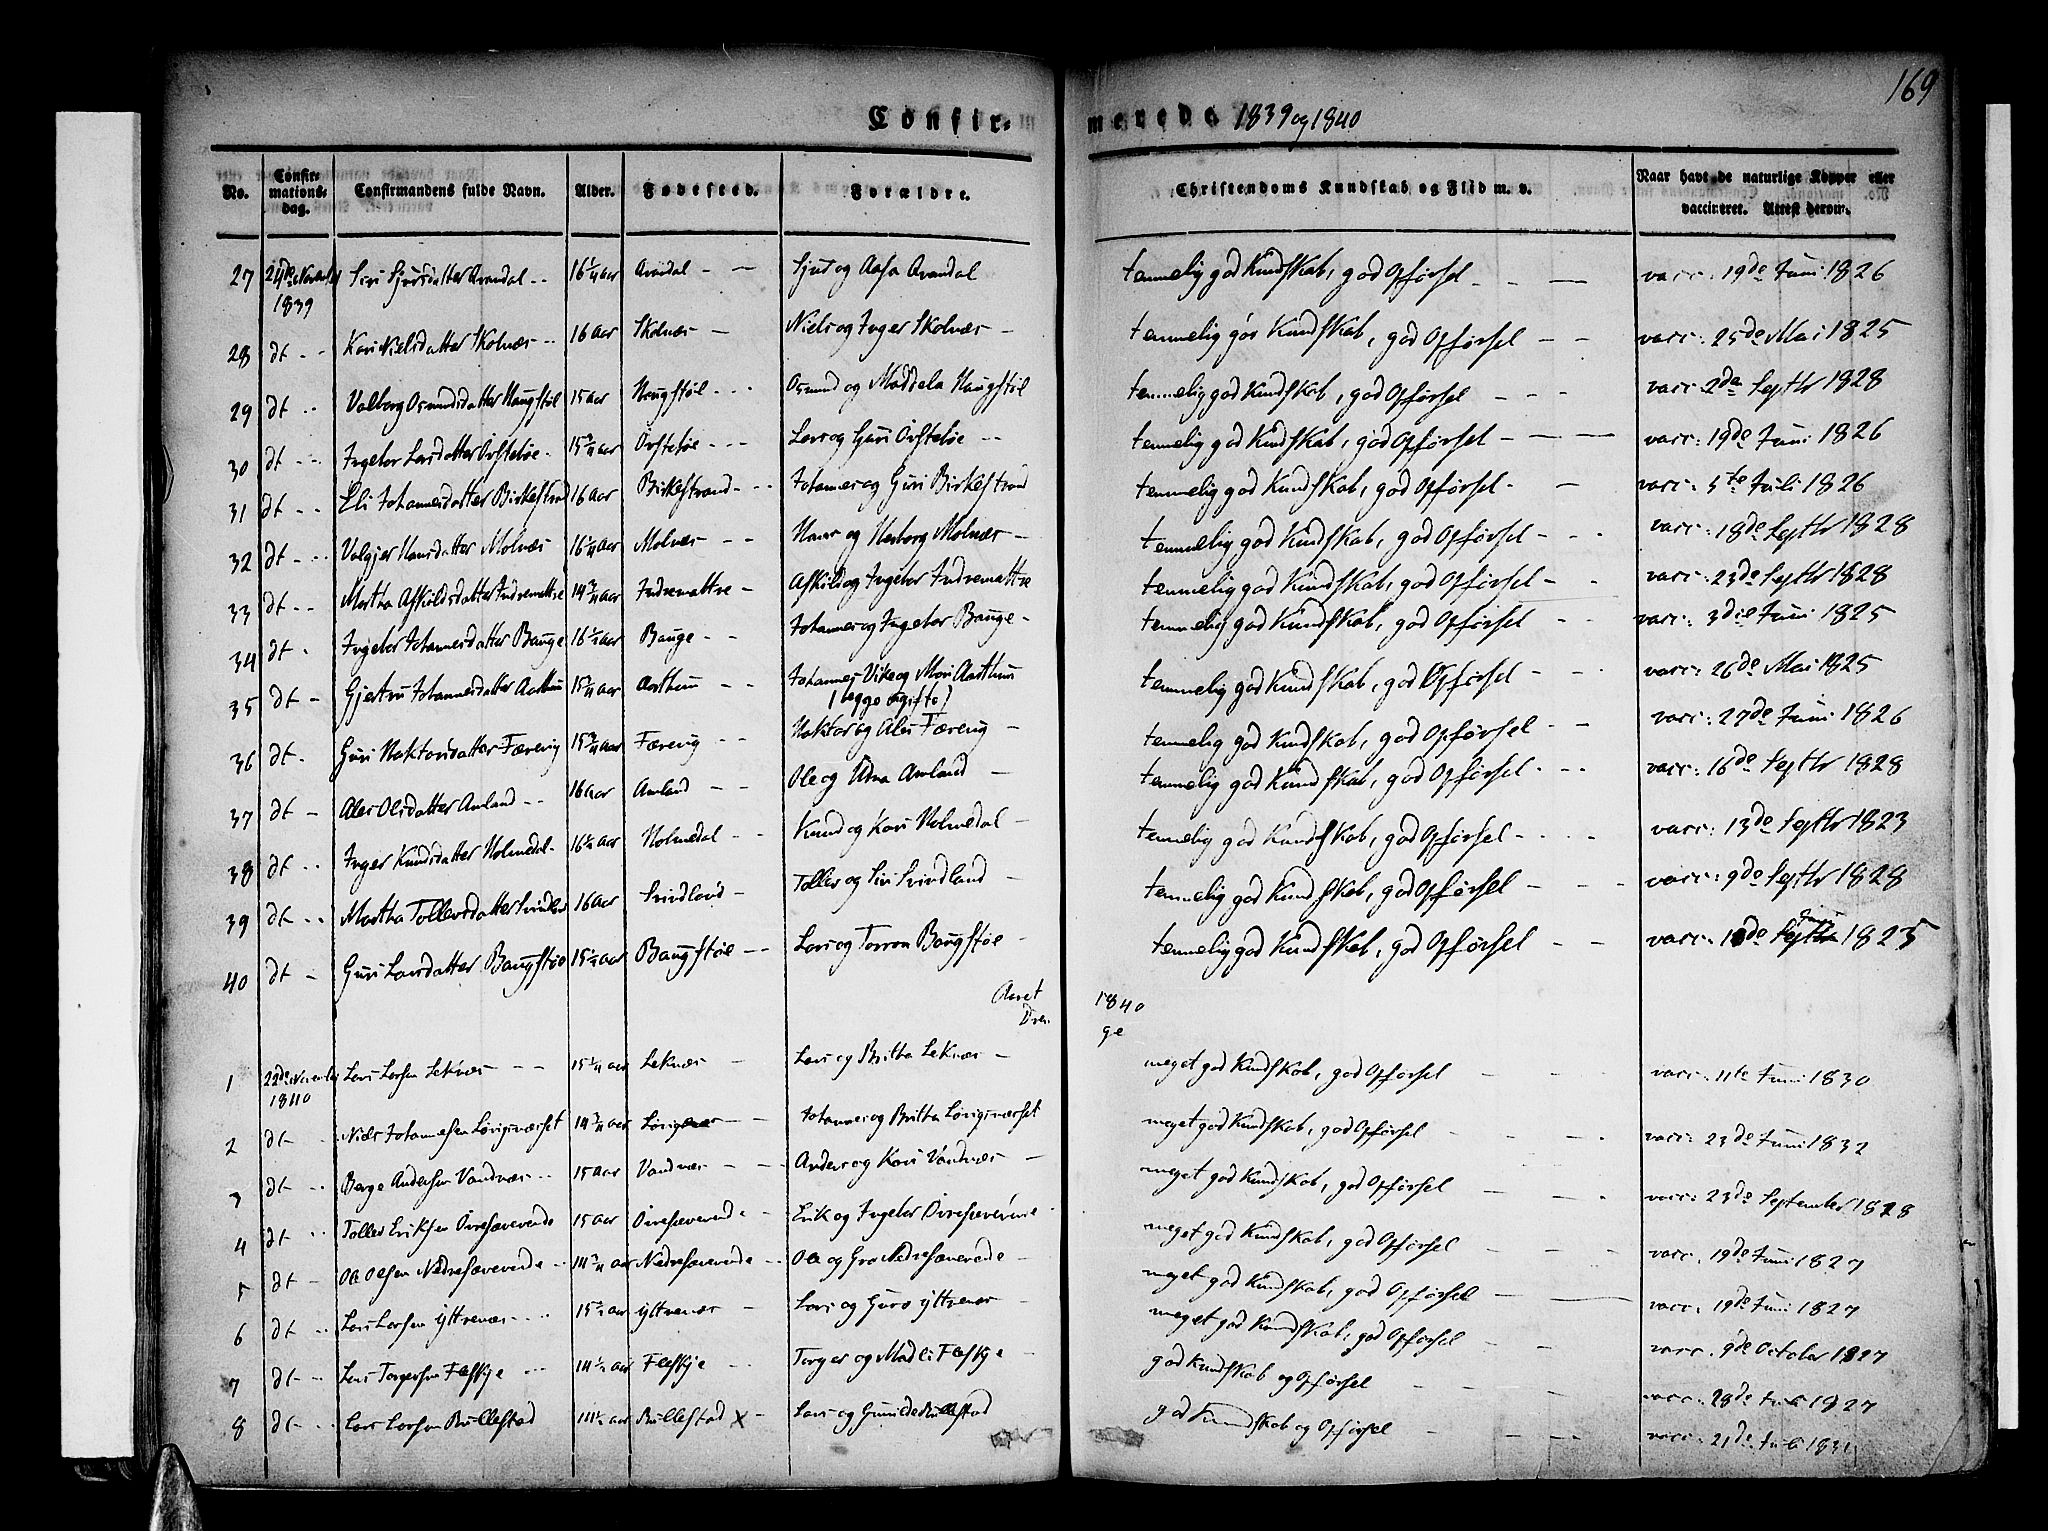 169
Confir- merede 1839 og 1840
No. Confir-mations-dag. Confirmandens fulde Navn. Alder. Fødested. Forældre. Christendoms Kundskab og Flid m. v. Naar havt de naturlige Kopper eller vaccineret. Attest herom.
27 24de November 1839 Siri Sjursdatter Avendal 16 1/4 aar Avendal Sjur og Aasa Avendal temmelig god Kundskab, god Opførsel vacc: 19de Juni 1826
28 dt Kari Nielsdatter Skolnæs 16 aar Skolnæs Niels og Inger Skolnæs temmelig god Kundskab, god Opførsel vacc: 25de Mai 1825
29 dt Valborg Osmundsdatter Haugstøl 15 aar Haugstøl Osmund og Haugstøl temmelig god Kundskab, god Opførsel vacc: 2de Septbr 1828
30 dt Ingebor Larsdatter Øvstebøe 15 3/4 aar Øvstebøe Lars og Guri Øvstebøe temmelig god Kundskab, god Opførsel vacc: 19de Juni 1826
31 dt Eli Johannesdatter Birkestrand 16 aar Birkestrand Johannes og Guri Birkestrand temmelig god Kundskab, god Opførsel vacc: 5te Juli 1826
32 dt Valgjer Hansdatter Molnæs 16 1/4 aar Molnæs Hans og Herborg Molnæs temmelig god Kundskab, god Opførsel vacc: 18de Septbr 1828
33 dt Martha Askildsdatter Indremattre 14 3/4 aar Indremattre Askild og Ingebor Indremattre temmelig god Kundskab, god Opførsel vacc: 23de Septbr 1828
34 dt Ingebor Johannesdatter Bauge 16 1/4 aar Bauge Johannes og Ingebor Bauge temmelig god Kundskab, god Opførsel vacc: 3die Juni 1825
35 dt Gjertru Johannesdatter Aarthun 15 3/4 aar Aarthun Johannes Vike og Mari Aarthun (begge ugifte) temmelig god Kundskab, god Opførsel vacc: 26de Mai 1825
36 dt Guri Haktorsdatter Færevig 15 3/4 aar Færevig Haktor og Ales Færevig temmelig god Kundskab, god Opførsel vacc: 27de Juni 1826
37 dt Ales Olsdatter Amland 16 aar Amland Ole og Amland temmelig god Kundskab, god Opførsel vacc: 16de Septbr 1828
38 dt Inger Knudsdatter Holmedal 16 1/4 aar Holmedal Knud og Kari Holmedal temmelig god Kundskab, god Opførsel vacc: 13de Septbr 1823
39 dt Martha Tollevsdatter Svindland 16 aar Svindland Tollev og Siri Svindland temmelig god Kundskab, god Opførsel vacc: 9de Septbr 1828
40 dt Guri Larsdatter Baugstøe 15 1/2 aar Baugstøe Lars og Baugstøe temmelig god Kundskab, god Opførsel vacc: 1825
Aaret 1840
Drenge
1 22de November 1840 Lars Larsen Leknæs 15 1/4 aar Leknæs Lars og Britha Leknæs meget god Kundskab, god Opførsel vacc: 11te Juni 1830
2 dt Niels Johannesen 14 3/4 aar Johannes og Britha meget god Kundskab, god Opførsel vacc: 23de Juni 1832
3 dt Berge Andersen Vandnæs 15 aar Vandnæs Anders og Kari Vandnæs meget god Kundskab, god Opførsel vacc: 23de September 1828
4 dt Tollev Eriksen Øvresæverende 15 aar Øvresæverende Erik og Ingebor Øvresæverende meget god Kundskab, god Opførsel vacc. 19de Juni 1827
5 dt Ole Olsen Nedresæverende 14 3/4 aar Nedresæverende Ole og Gro Nedresæverende meget god Kundskab, god Opførsel vacc. 19de Juni 1827
6 dt Lars Larsen Yttrenæs 15 1/2 aar Yttrenæs Lars og Guro Yttrenæs meget god Kundskab, god Opførsel vacc. 9de October 1827
7 dt Lars Torgersen Fleskje 14 1/2 aar Fleskje Torger og Madli Fleskje god Kundskab og Opførsel vacc. 28de Juli 1827
8 dt Lars Larsen Bullestad 14 1/2 aar Bullestad x Lars og Gunilde Bullestad god Kundskab og Opførsel vacc. 21de Juli